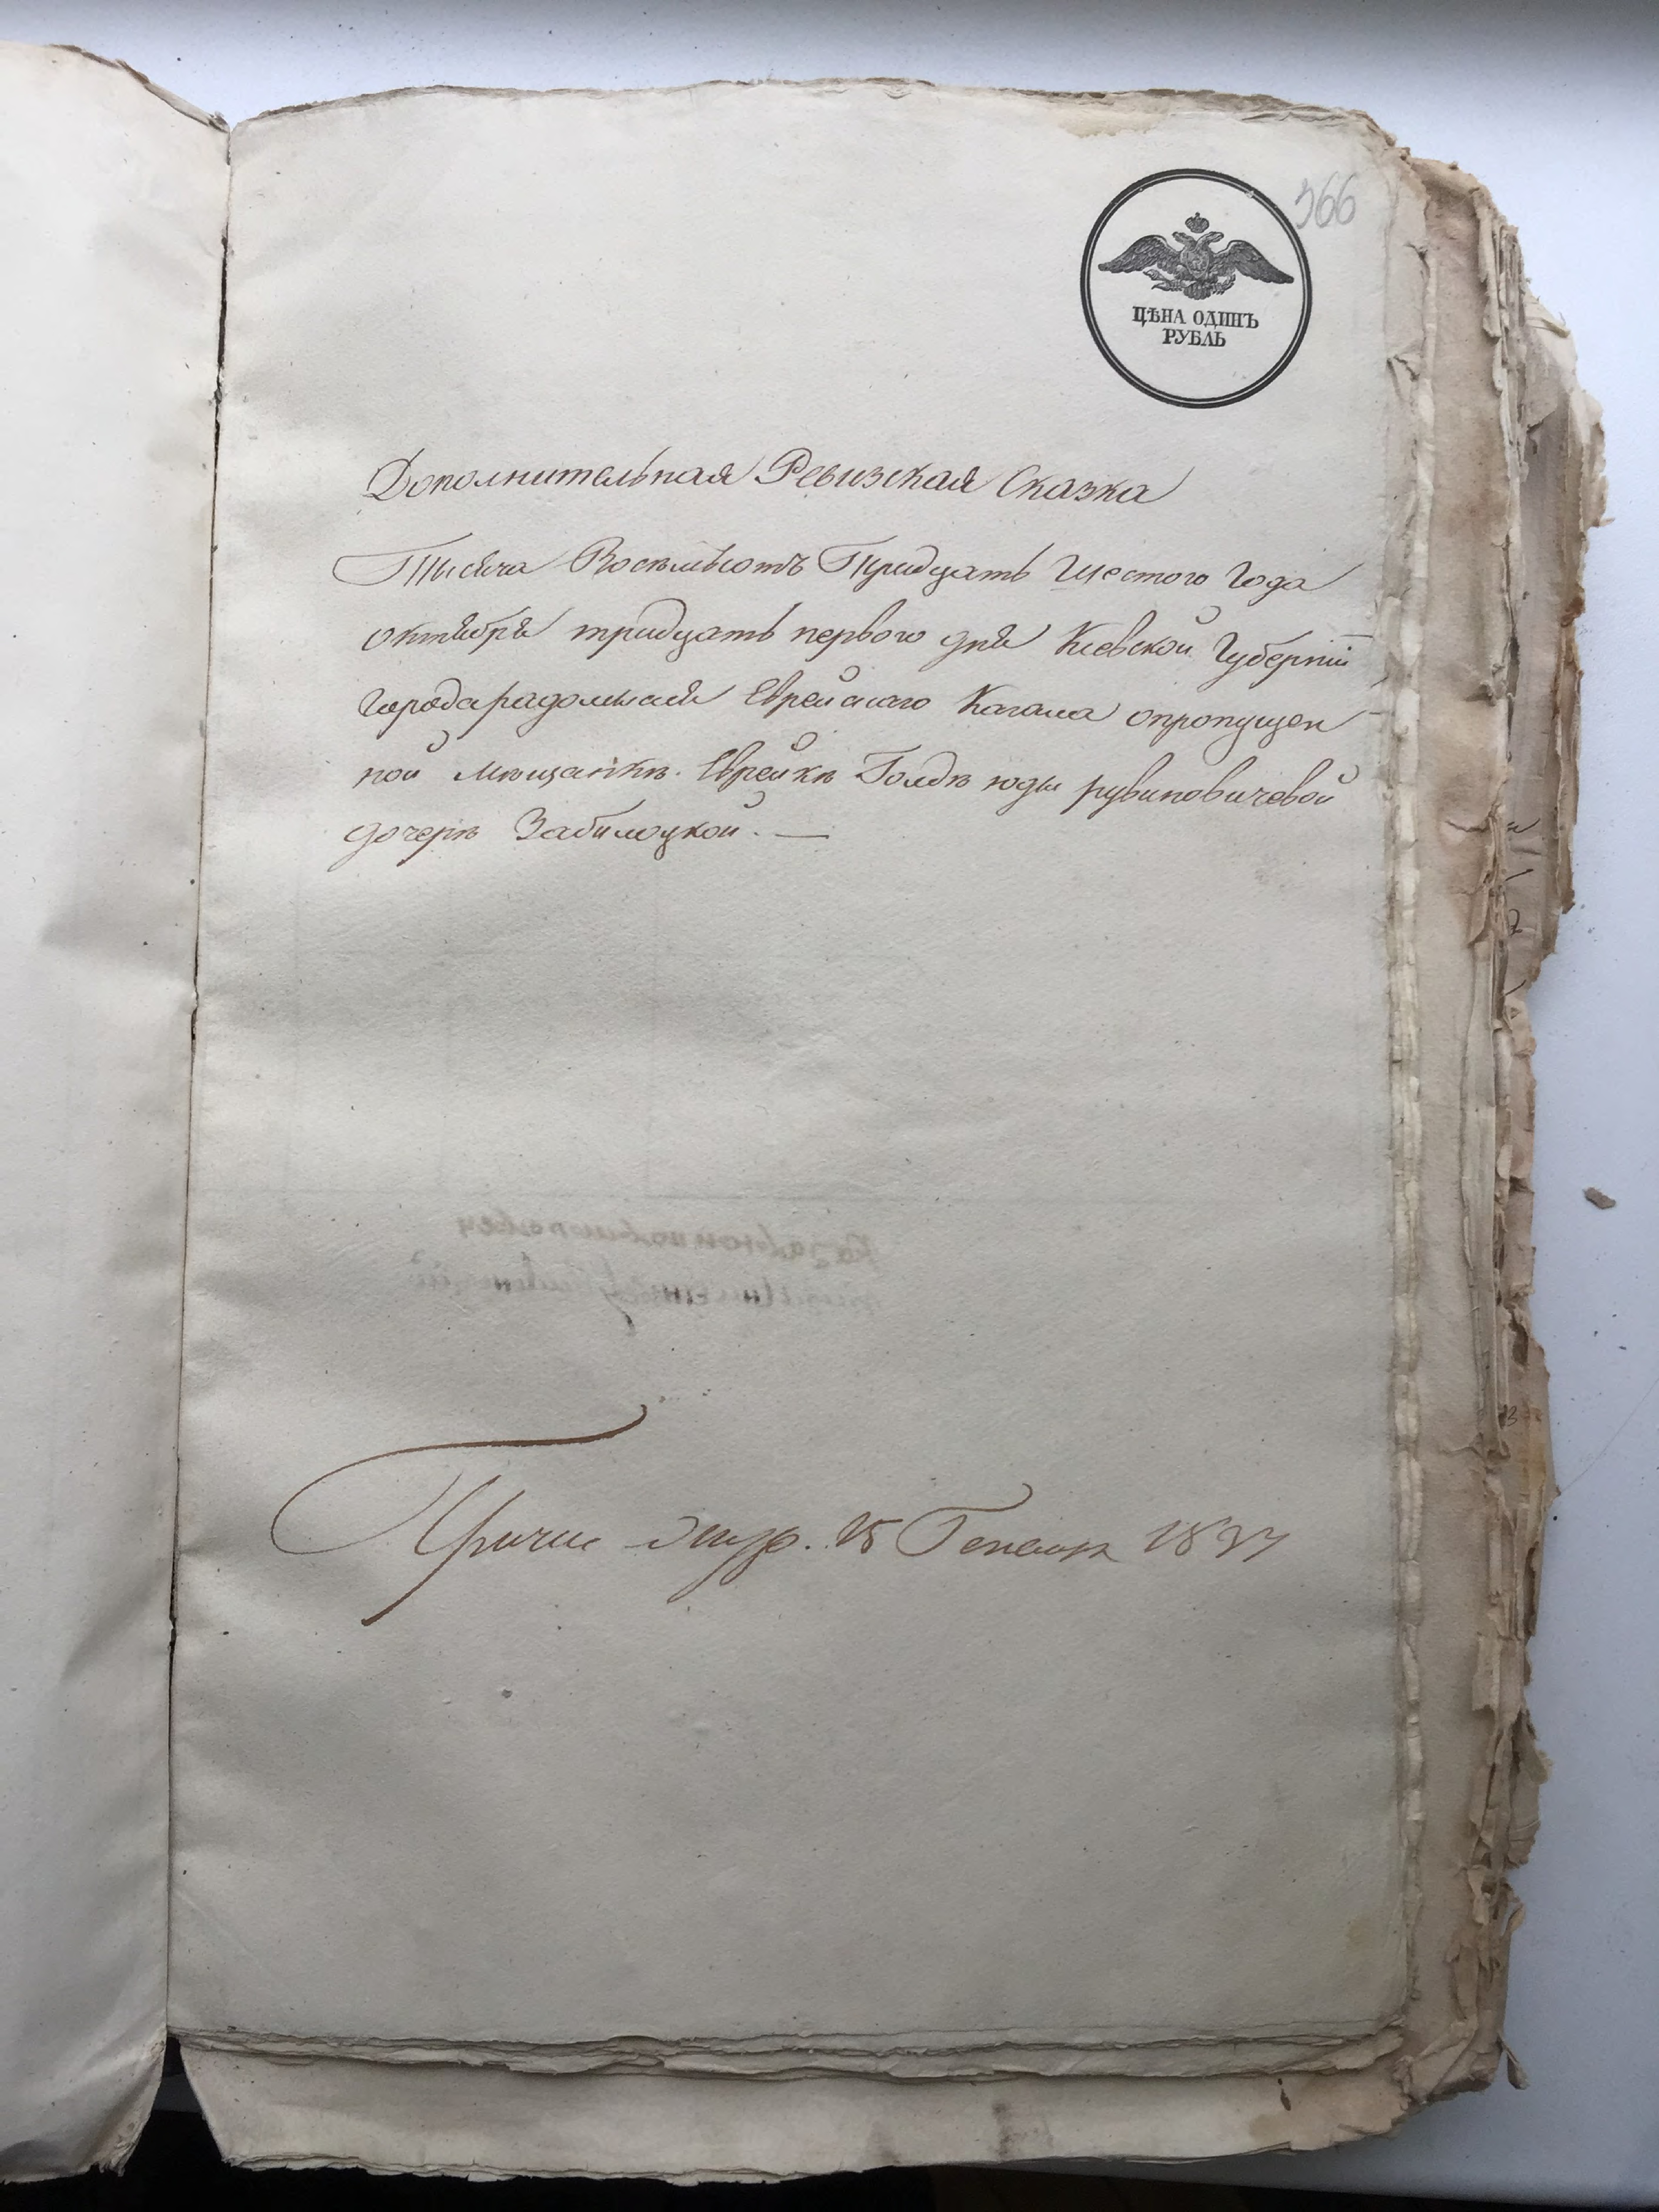 366
ЦѢНА ОДИНЪ
РУБЛЬ
Дополнительная Ревизская Сказка
Тысяча Восемьсотъ Тридцать Шестого Года
октября тридцать первого дня Киевской Губернїи
города радомысля Еврейскаго Кагала опропущен
ной мещанкѣ Еврейкѣ Голдѣ юды рувиновичевой
дочерѣ Забилоцкой. —
18 Генваря 1837